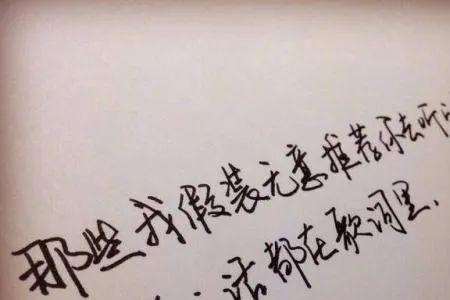 那些我假装无意推荐你去听
话都在歌词里.